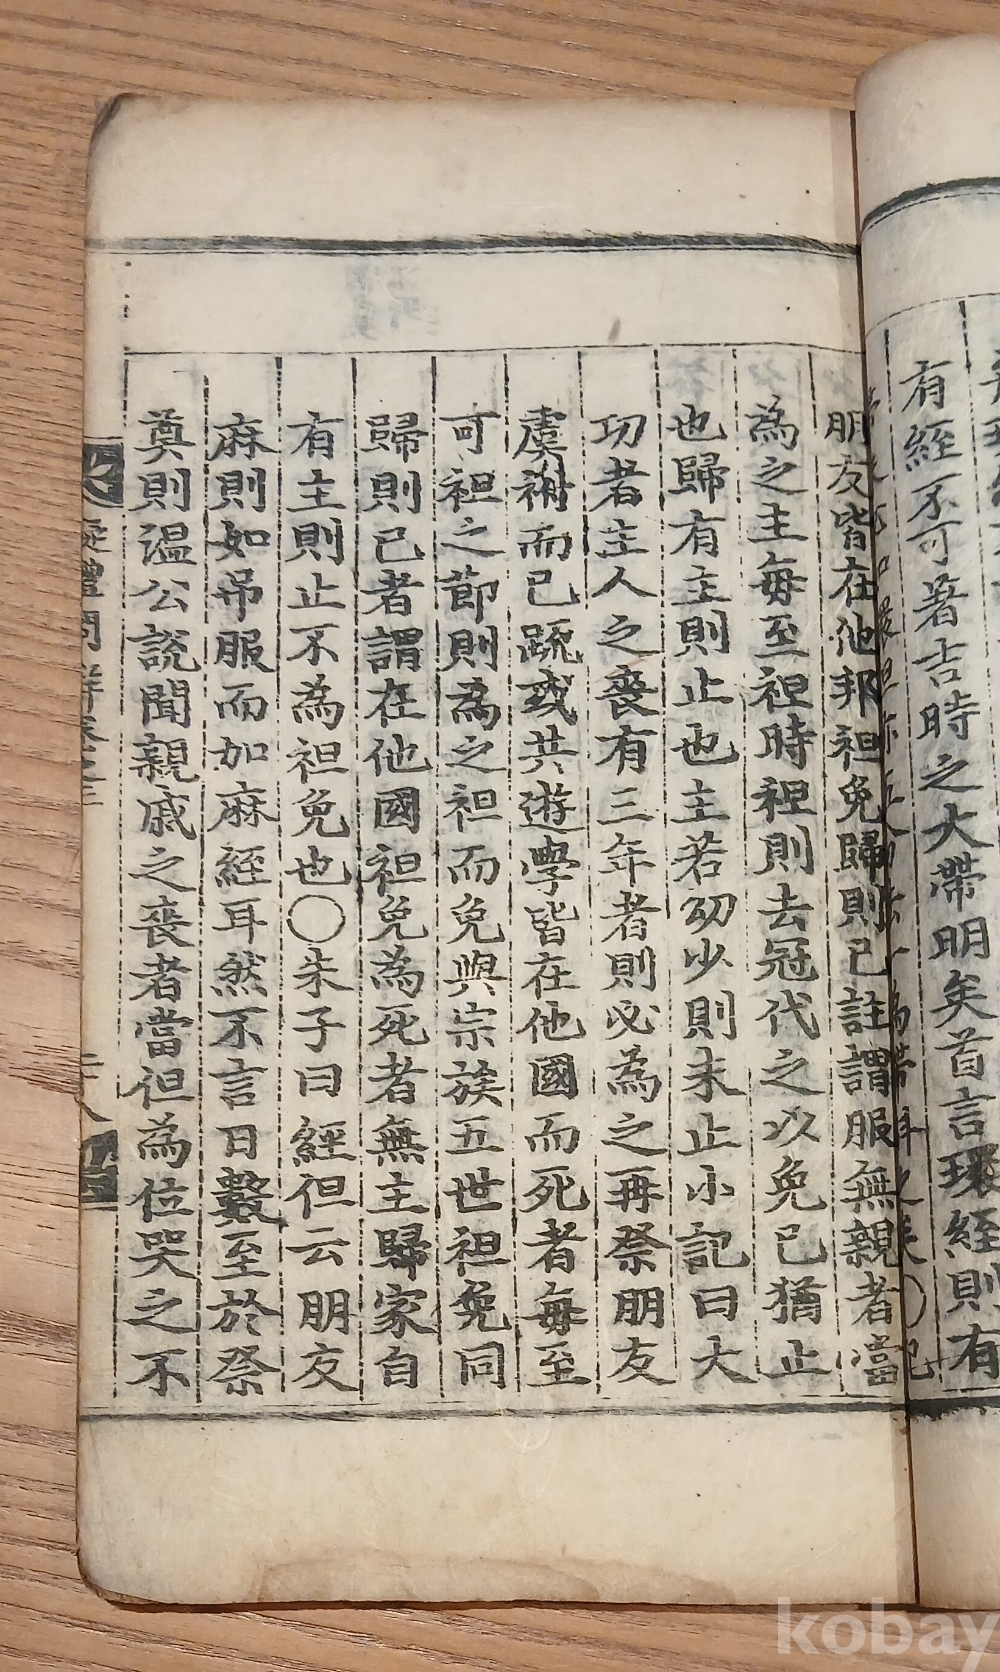 有絰不可著吉時之大帶明矣首言環絰則有
朋友皆在他邦袒免歸則已註謂服無親者當
為之主每至袒時袒則去冠代之以免已猶止
也歸有主則止也主若幼少則未止小記曰大
功者主人之喪有三年者則必為之再祭朋友
虞祔而已疏或共遊學皆在他國而死者每至
可袒之節則為之袒而免與宗族五世袒免同
歸則已者謂在他國袒免為死者無主歸家自
有主則止不為袒免也〇朱子曰經但云朋友
麻則如吊服而加麻絰耳然不言日數至於祭
奠則溫公說聞親戚之喪者當但為位哭之不
疑禮問解卷之三
二十八
kobay